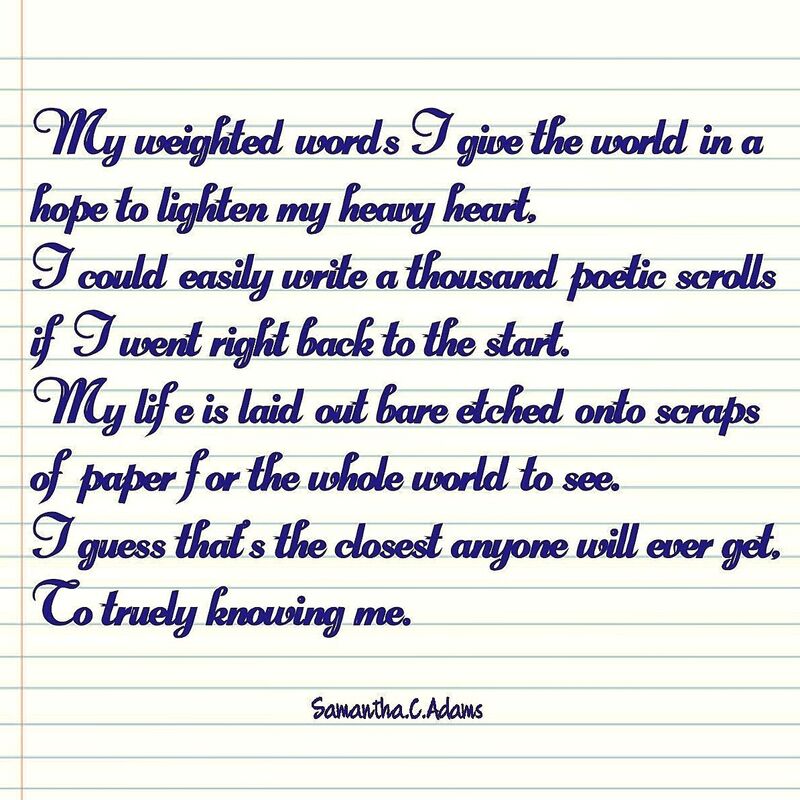 My weighted words I give the world in a
hope to lighten my heavy heart,
I could easily write a thousand poetic scrolls
if I went right back to the start.
My life is laid out bare etched onto scraps
of paper for the whole world to see.
I guess that's the closest anyone will ever get,
To truely knowing me.
Samantha.C.Adams